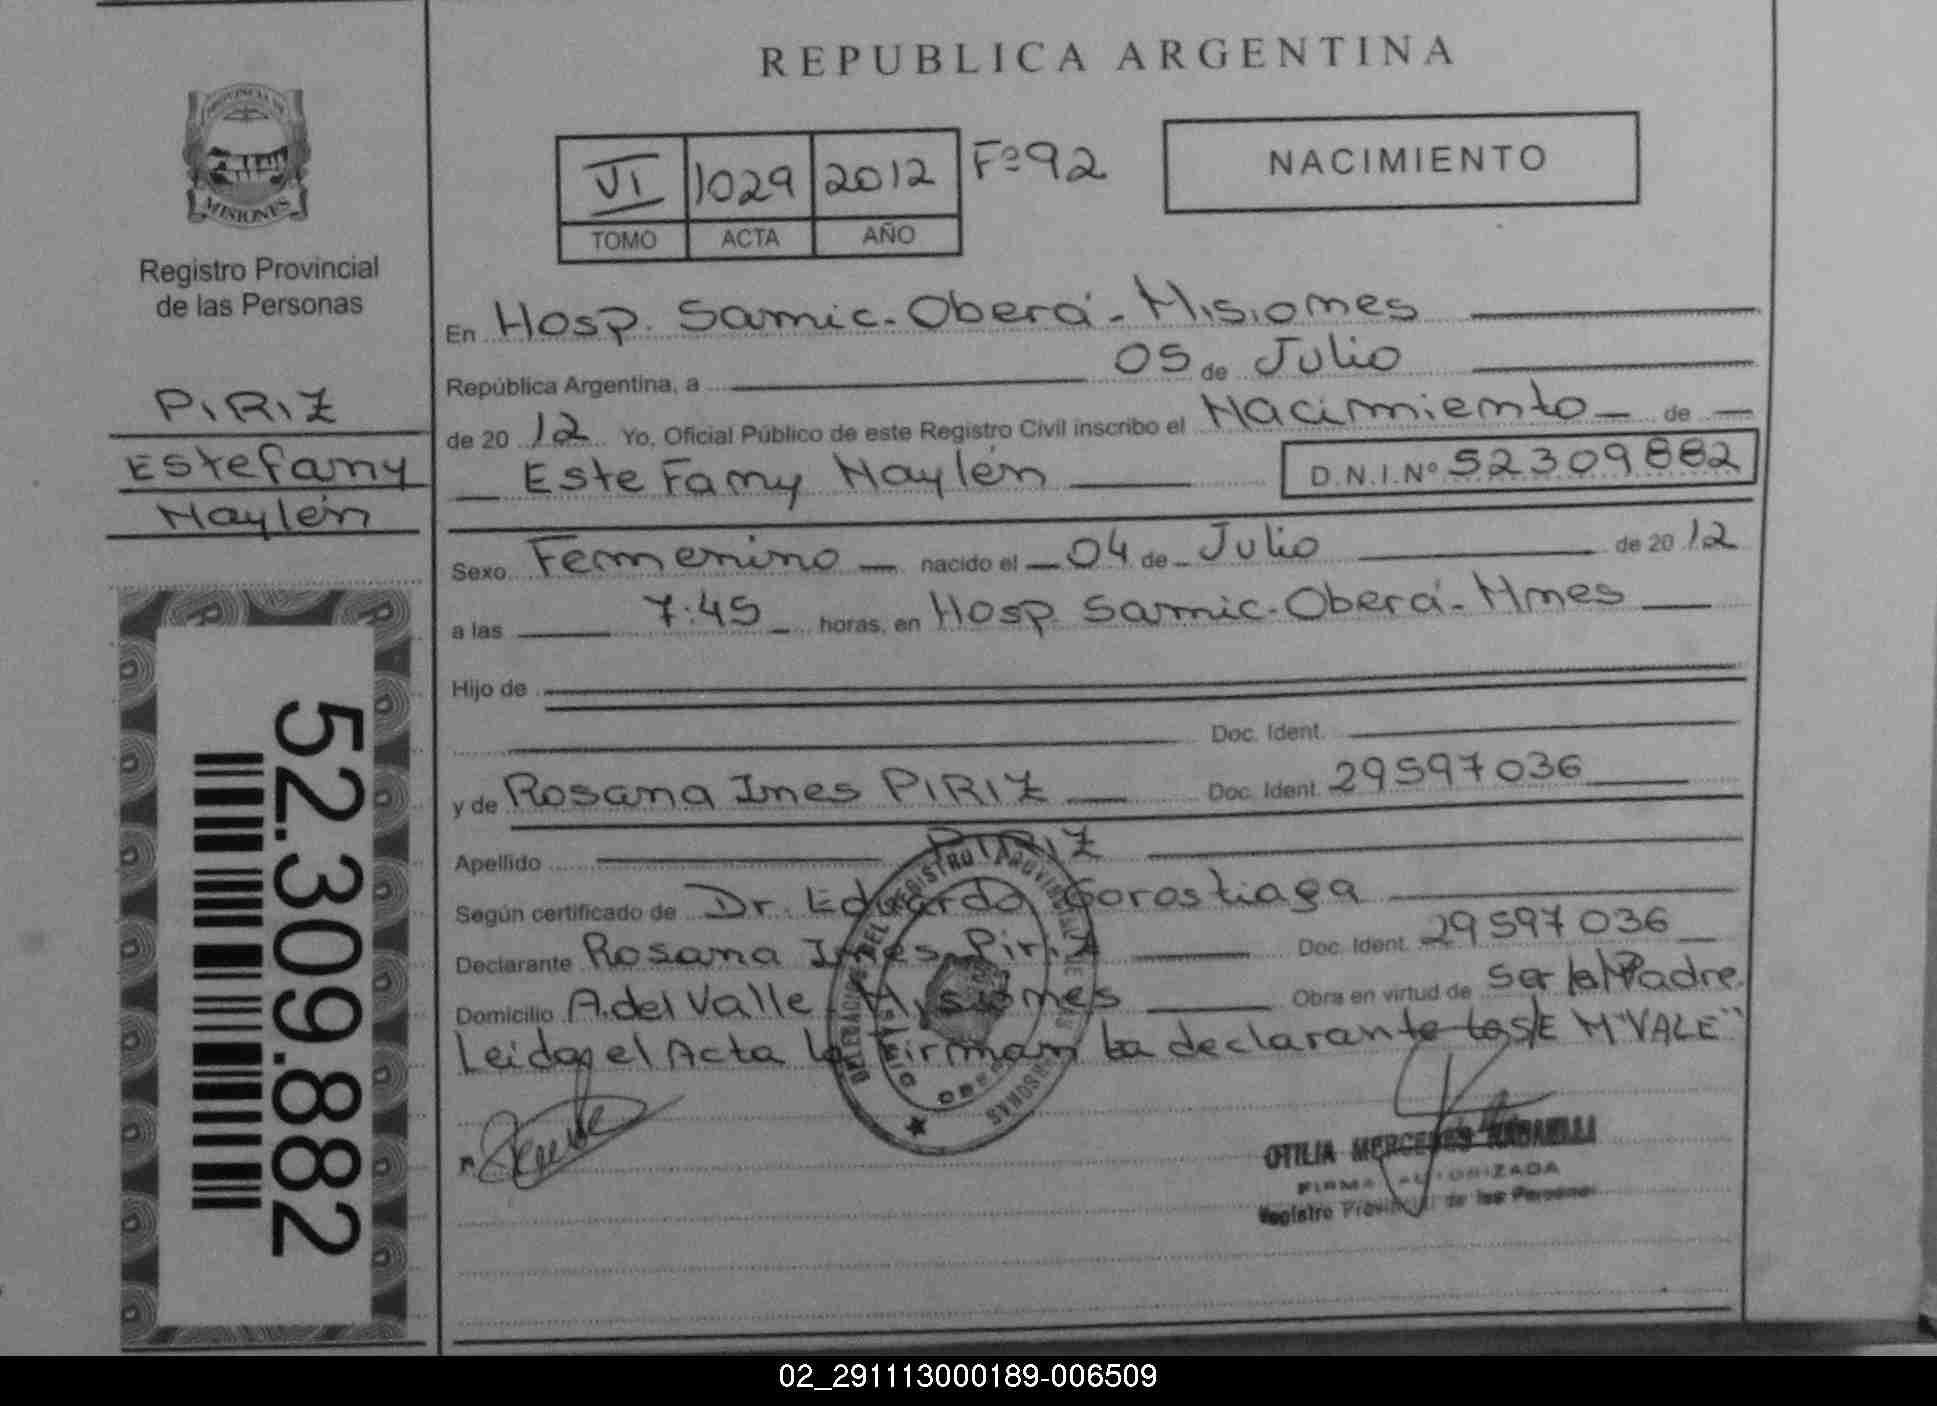 REPUBLICA ARGENTINA
PROVINCIA DE
MISIONES
Registro Provincial
de las Personas
PIRIZ
Estefany
Naylén
52.309.882
VI 1029 2012 Fº92
TOMO ACTA AÑO
NACIMIENTO
En Hosp. Samic. Oberá - Misiones
República Argentina, a 05 de Julio
de 20 12 Yo, Oficial Público de este Registro Civil inscribo el Nacimiento de
Estefany Naylén D.N.I.Nº 52309882
Sexo Femenino nacido el 04 de Julio de 20 12
a las 7:45 horas, en Hosp. Samic. Oberá - Mnes
Hijo de
Doc. Ident.
y de Rosana Ines PIRIZ Doc. Ident. 29597036
Apellido PIRIZ
Según certificado de Dr. Eduardo Gorostiaga
Declarante Rosana Ines Piriz Doc. Ident. 29597036
Domicilio A. del Valle Misiones Obra en virtud de ser la Madre
Leida el Acta la firman la declarante S/E M "VALE"
OTILIA MERCEDES
FIRMA AUTORIZADA
Registro Provincial de las Personas
02_291113000189-006509